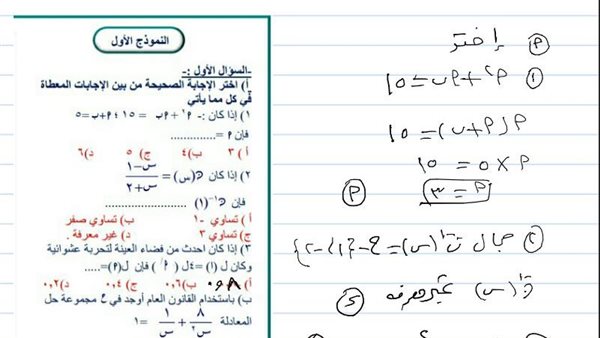 النموذج الأول
السؤال الأول :-
أ) اختر الإجابة الصحيحة من بين الإجابات المعطاة
في كل مما يأتي
١) إذا كان :- م٢ + م ب = ١٥ ، م + ب = ٥
فإن م = ..............
أ) ٣ ب) ٤ ج) ٥ د) ٦
٢) إذا كان ن(س) = س - ١ / س + ٢
فإن ن-١(١) ..................
أ) تساوي -١ ب) تساوي صفر
ج) تساوي ٣ د) غير معرفة .
٣) إذا كان أحدث من فضاء العينة لتجربة عشوائية
وكان ل(أ) = ٤ ل(أ) فإن ل(م) = .....
أ) ٠,٨ ب) ٠,٦ ج) ٠,٤ د) ٠,٢
ب) باستخدام القانون العام أوجد في ع مجموعة حل
المعادلة ٨/س٢ + ١/س = ١
م إختر
١ م٢ + م ب = ١٥
م(م + ب) = ١٥
م × ٥ = ١٥
م = ٣ م
٢ مجال ن-١(س) = ع - {١، -٢}
ن-١(س) غير معرفه